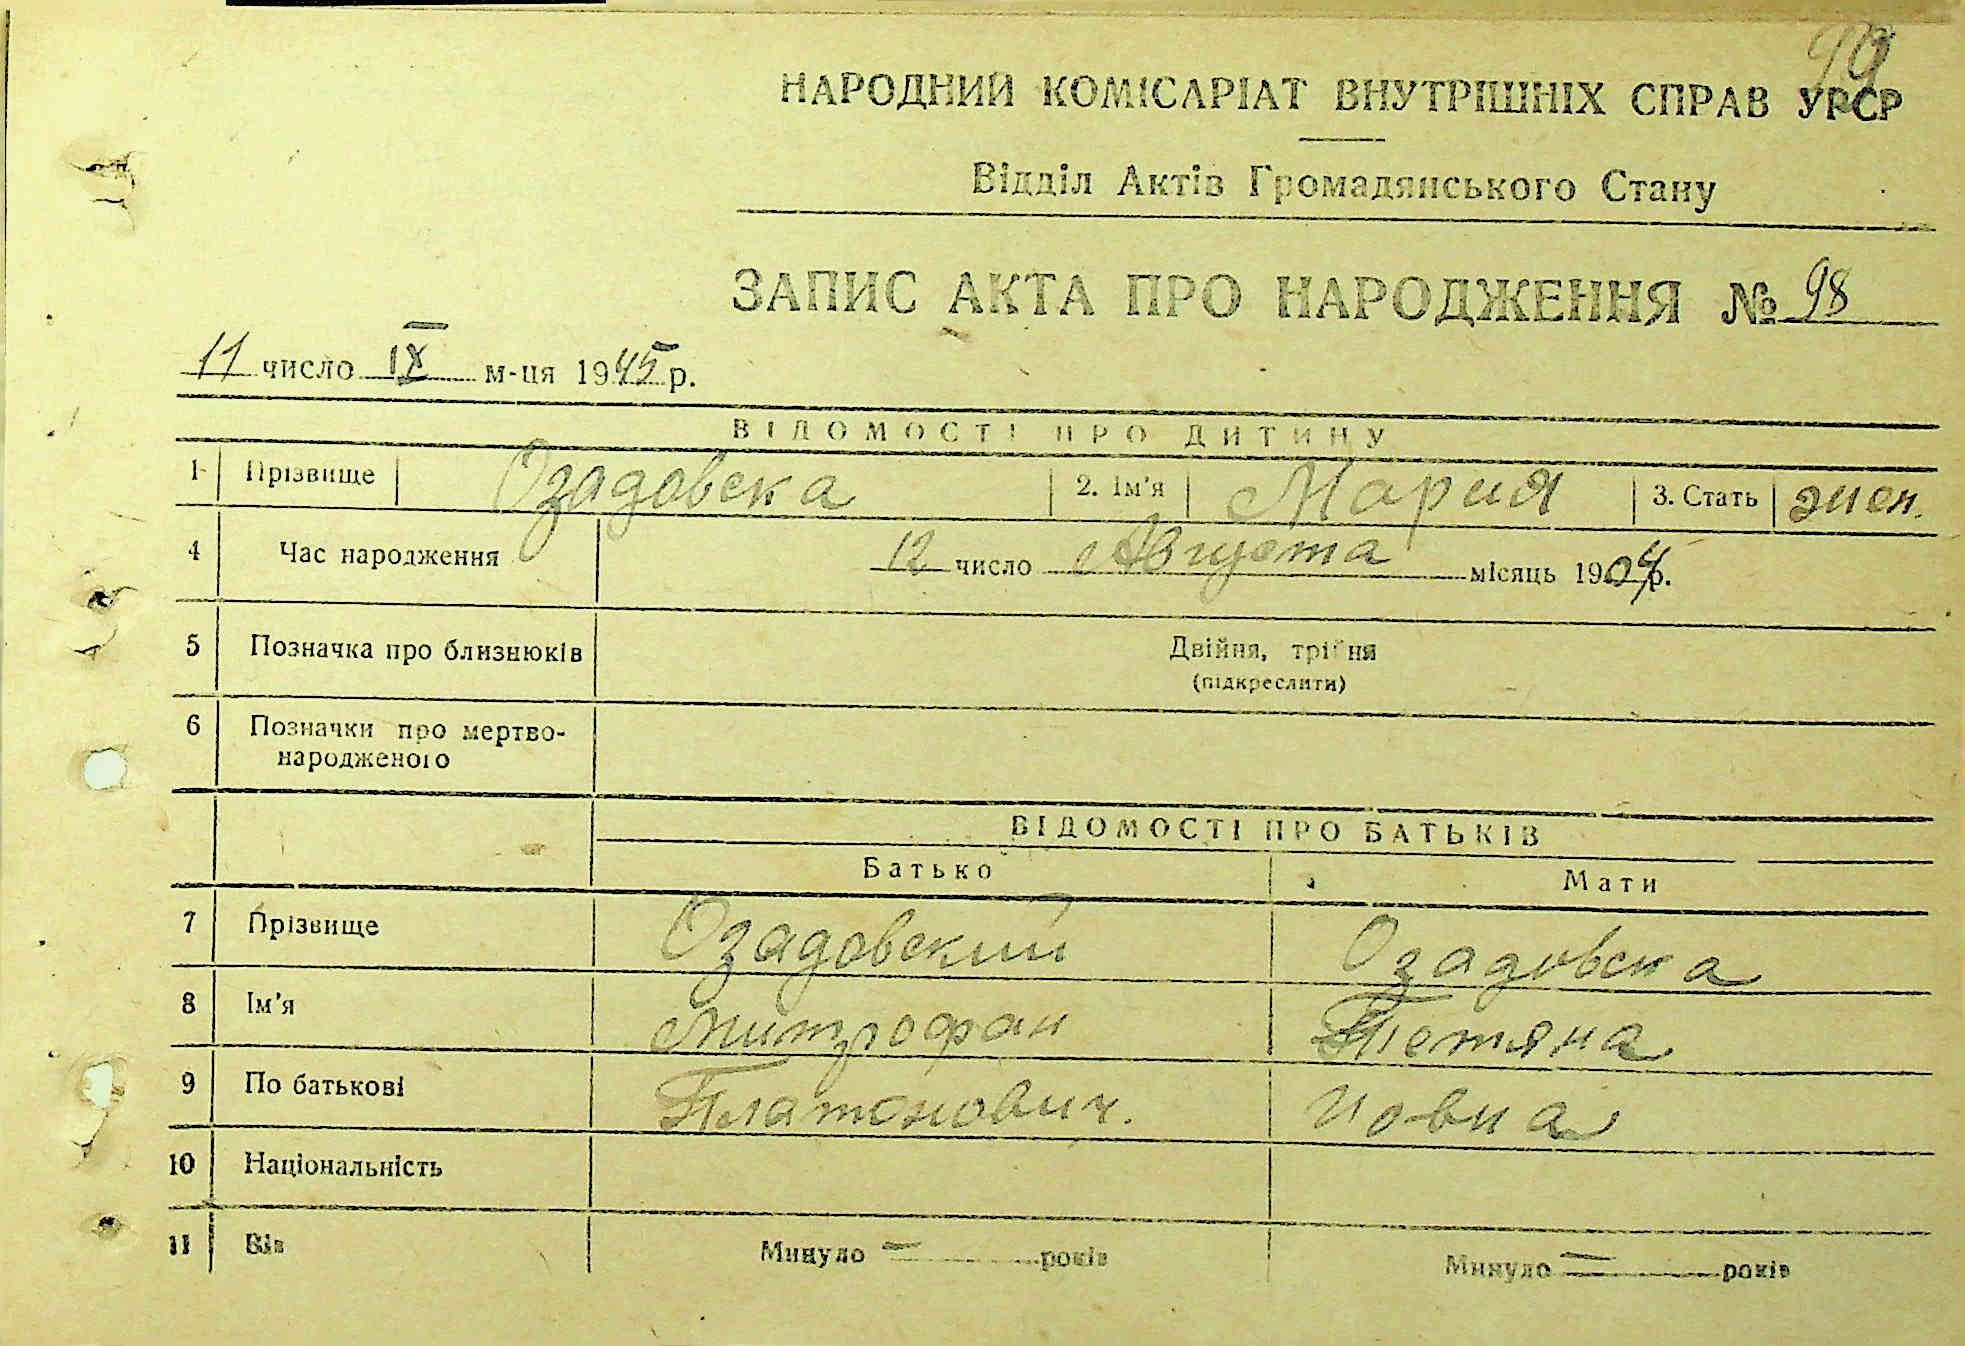 99
НАРОДНИЙ КОМІСАРІАТ ВНУТРІШНІХ СПРАВ УРСР
Відділ Актів Громадянського Стану
ЗАПИС АКТА ПРО НАРОДЖЕННЯ № 98
11 число IX м-ця 1945 р.
ВІДОМОСТІ ПРО ДИТИНУ
1 Прізвище Озадовска 2. Ім'я Мария 3. Стать жен.
4 Час народження 12 число Августа місяць 1904 р.
5 Позначка про близнюків Двійня, трійня
(підкреслити)
6 Позначки про мертво-
народженого
ВІДОМОСТІ ПРО БАТЬКІВ
Батько Мати
7 Прізвище Озадовский Озадовска
8 Ім'я Митрофан Тетяна
9 По батькові Платонович. Иовна
10 Національність
11 Вік Минуло — років Минуло — років